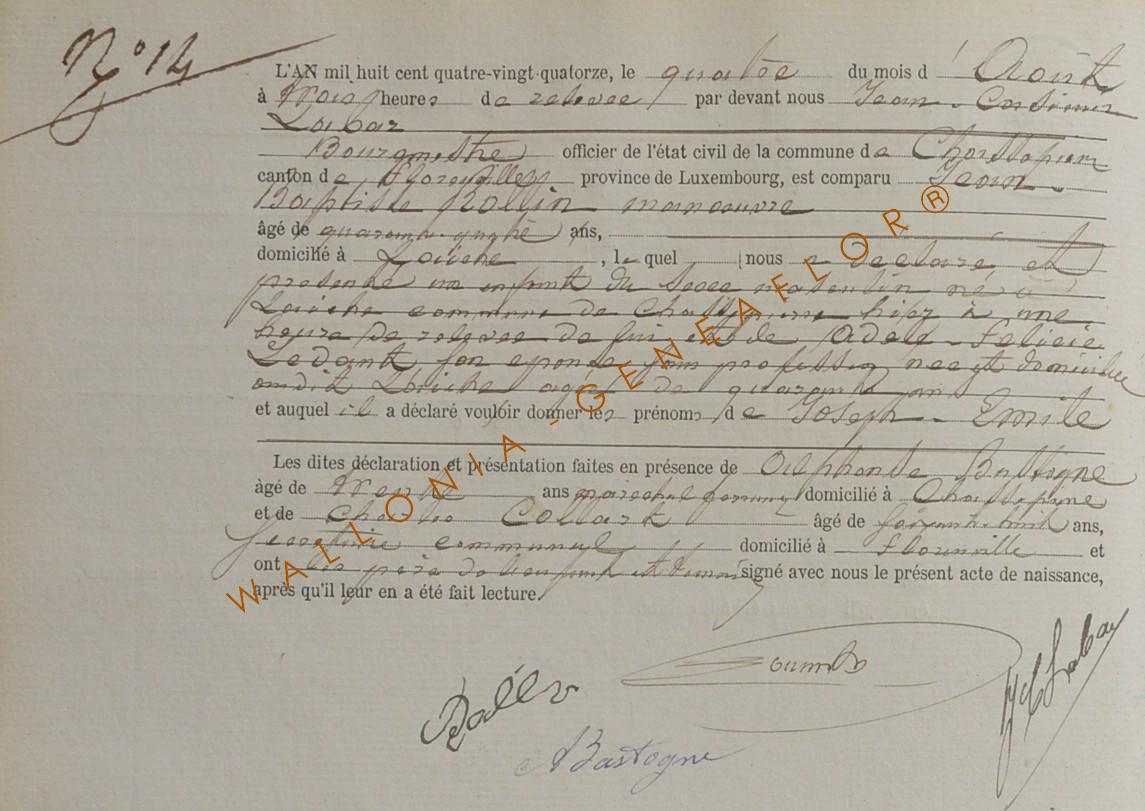 N° 14
L'AN mil huit cent quatre-vingt-quatorze, le quatre du mois d' Août
à trois heures de relevée par devant nous Jean - Casimir
Labar
Bourgmestre officier de l'état civil de la commune de Chassepierre
canton de Florenville province de Luxembourg, est comparu Jean
Baptiste Rollin manoeuvre
âgé de quarante quatre ans,
domicilié à Laiche, le quel nous a déclaré et
présenté un enfant du sexe masculin né à
Laiche commune de Chassepierre hier à une
heure de relevée de lui et de Adèle - Félicie
Ledant son épouse sans profession née et domiciliée
audit Laiche agée de quarante ans
et auquel il a déclaré vouloir donner les prénoms de Joseph - Emile
Les dites déclaration et présentation faites en présence de Alphonse Bastogne
âgé de trente ans maréchal ferrant domicilié à Chassepierre
et de Charles Collart âgé de ans,
secrétaire communal domicilié à Florenville et
ont les père de l'enfant et témoins signé avec nous le présent acte de naissance,
après qu'il leur en a été fait lecture.
JC Labar
Bastogne
WALLONIA - GENEAFLOR ®